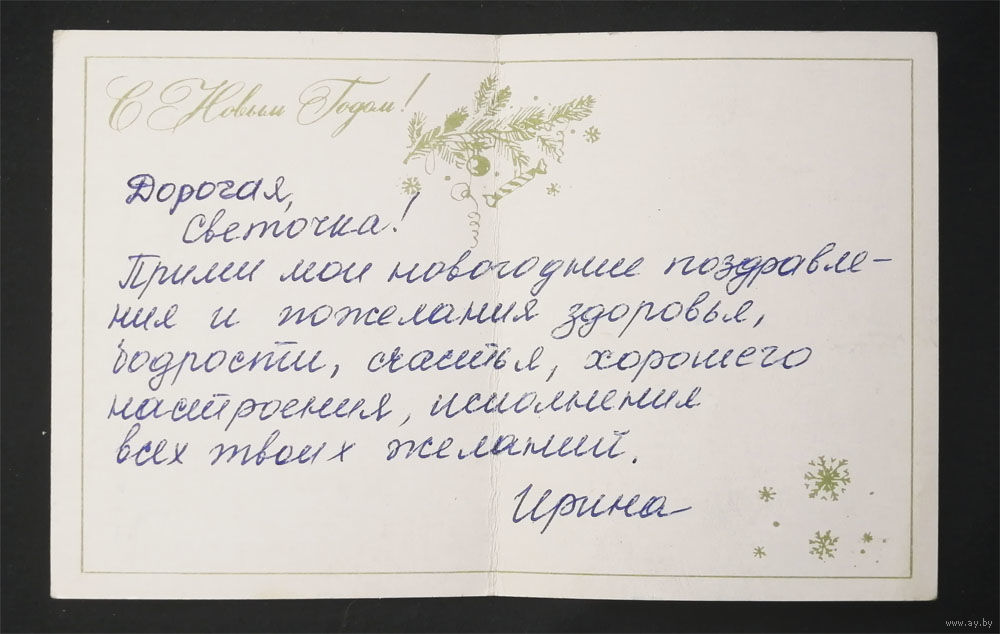 С Новым Годом!
Дорогая,
Светочка!
Прими мои новогодние поздравле-
ния и пожелания здоровья,
бодрости, счастья, хорошего
настроения, исполнения
всех твоих желаний.
Ирина
www.ay.by